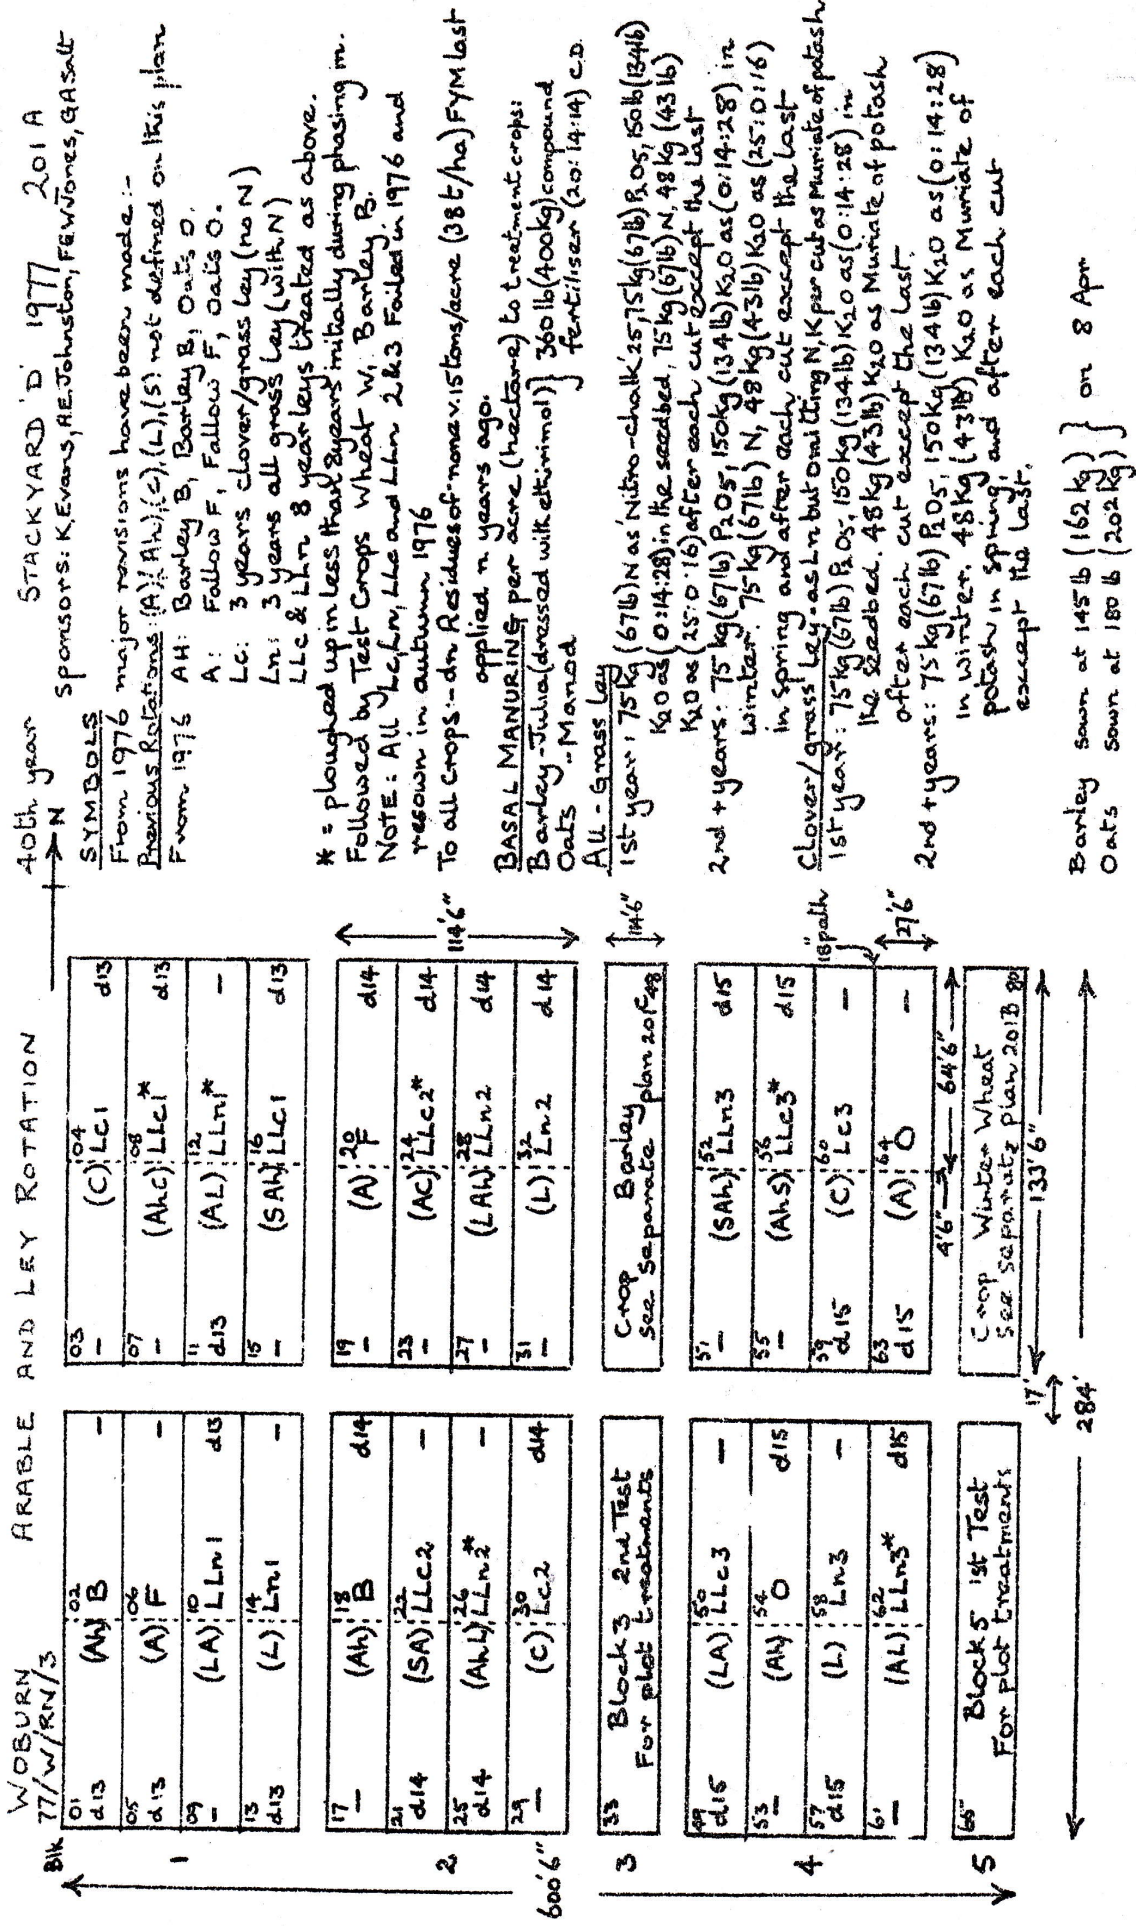 WOBURN ARABLE AND LEY ROTATION 40th year STACKYARD 'D' 1977 201 A
77/W/RN/3
→ N
Sponsors: K.Evans, A.E.Johnston, F.E.W.Jones, G.A.Salt
Blk
01 d13 (Ah) 02 B –
03 – (C) 04 Lc1 d13
05 d13 (A) 06 F –
07 – (Ahc) 08 LLc1* d13
1
09 – (LA) 10 LLn1 d13
11 d13 (AL) 12 LLn1* –
13 d13 (L) 14 Ln1 –
15 – (SAh) 16 LLc1 d13
17 – (Ah) 18 B d14
19 – (A) 20 F d14
21 d14 (SA) 22 LLc2 –
23 – (AC) 24 LLc2* d14
2
25 d14 (AhL) 26 LLn2* –
27 – (LAh) 28 LLn2 d14
29 – (C) 30 Lc2 d14
31 – (L) 32 Ln2 d14
114'6"
600'6"
3
33 Block 3 2nd Test
For plot treatments
Crop Barley
See separate plan 201C 48
114'6"
49 d15 (LA) 50 LLc3 –
51 – (SAh) 52 LLn3 d15
53 – (Ah) 54 O d15
55 – (AhS) 56 LLc3* d15
4
57 d15 (L) 58 Ln3 –
59 d15 (C) 60 Lc3 –
61 – (AL) 62 LLn3* d15
63 d15 (A) 64 O –
18" path
27'6"
4'6" 64'6"
5
65 Block 5 1st Test
For plot treatments
Crop Winter Wheat
See separate plan 201B 80
17' 133'6"
284'
SYMBOLS
From 1976 major revisions have been made:-
Previous Rotations: (A)(Ah),(C),(L),(S) not defined on this plan
From 1976 AH: Barley B, Barley B, Oats O.
A: Fallow F, Fallow F, Oats O.
Lc: 3 years clover/grass ley (no N)
Ln: 3 years all grass ley (with N)
LLc & LLn 8 year leys treated as above.
* = ploughed up in less than 8 years initially during phasing in.
Followed by Test Crops Wheat W, Barley B.
NOTE: All Lc, Ln, LLc and LLn in 2&3 Failed in 1976 and
resown in autumn 1976
To all crops:- dn Residues of none v. 15 tons/acre (38 t/ha) FYM last
applied n years ago.
BASAL MANURING per acre (hectare) to treatment crops:
Barley-Julia (dressed with ethirimol)} 360 lb (400kg) compound
Oats -Manod } fertiliser (20:14:14) C.D.
All-Grass Ley
1st year: 75kg (67lb) N as 'Nitro-chalk' 25, 75kg (67lb) P2O5, 150kg (134lb)
K2O as (0:14:28) in the seedbed, 75kg (67lb) N, 48kg (43lb)
K2O as (25:0:16) after each cut except the last
2nd + years: 75kg (67lb) P2O5, 150kg (134lb) K2O as (0:14:28) in
winter. 75kg (67lb) N, 48kg (43lb) K2O as (25:0:16)
in spring and after each cut except the last
Clover/grass Ley -as Ln but omitting N, K per cut as Muriate of potash
1st year: 75kg (67lb) P2O5, 150kg (134lb) K2O as (0:14:28) in
the seedbed. 48kg (43lb) K2O as Muriate of potash
after each cut except the last.
2nd + years: 75kg (67lb) P2O5, 150kg (134lb) K2O as (0:14:28)
in winter. 48kg (43lb) K2O as Muriate of
potash in spring, and after each cut
except the last.
Barley sown at 145 lb (162 kg) } on 8 Apr
Oats sown at 180 lb (202 kg) }